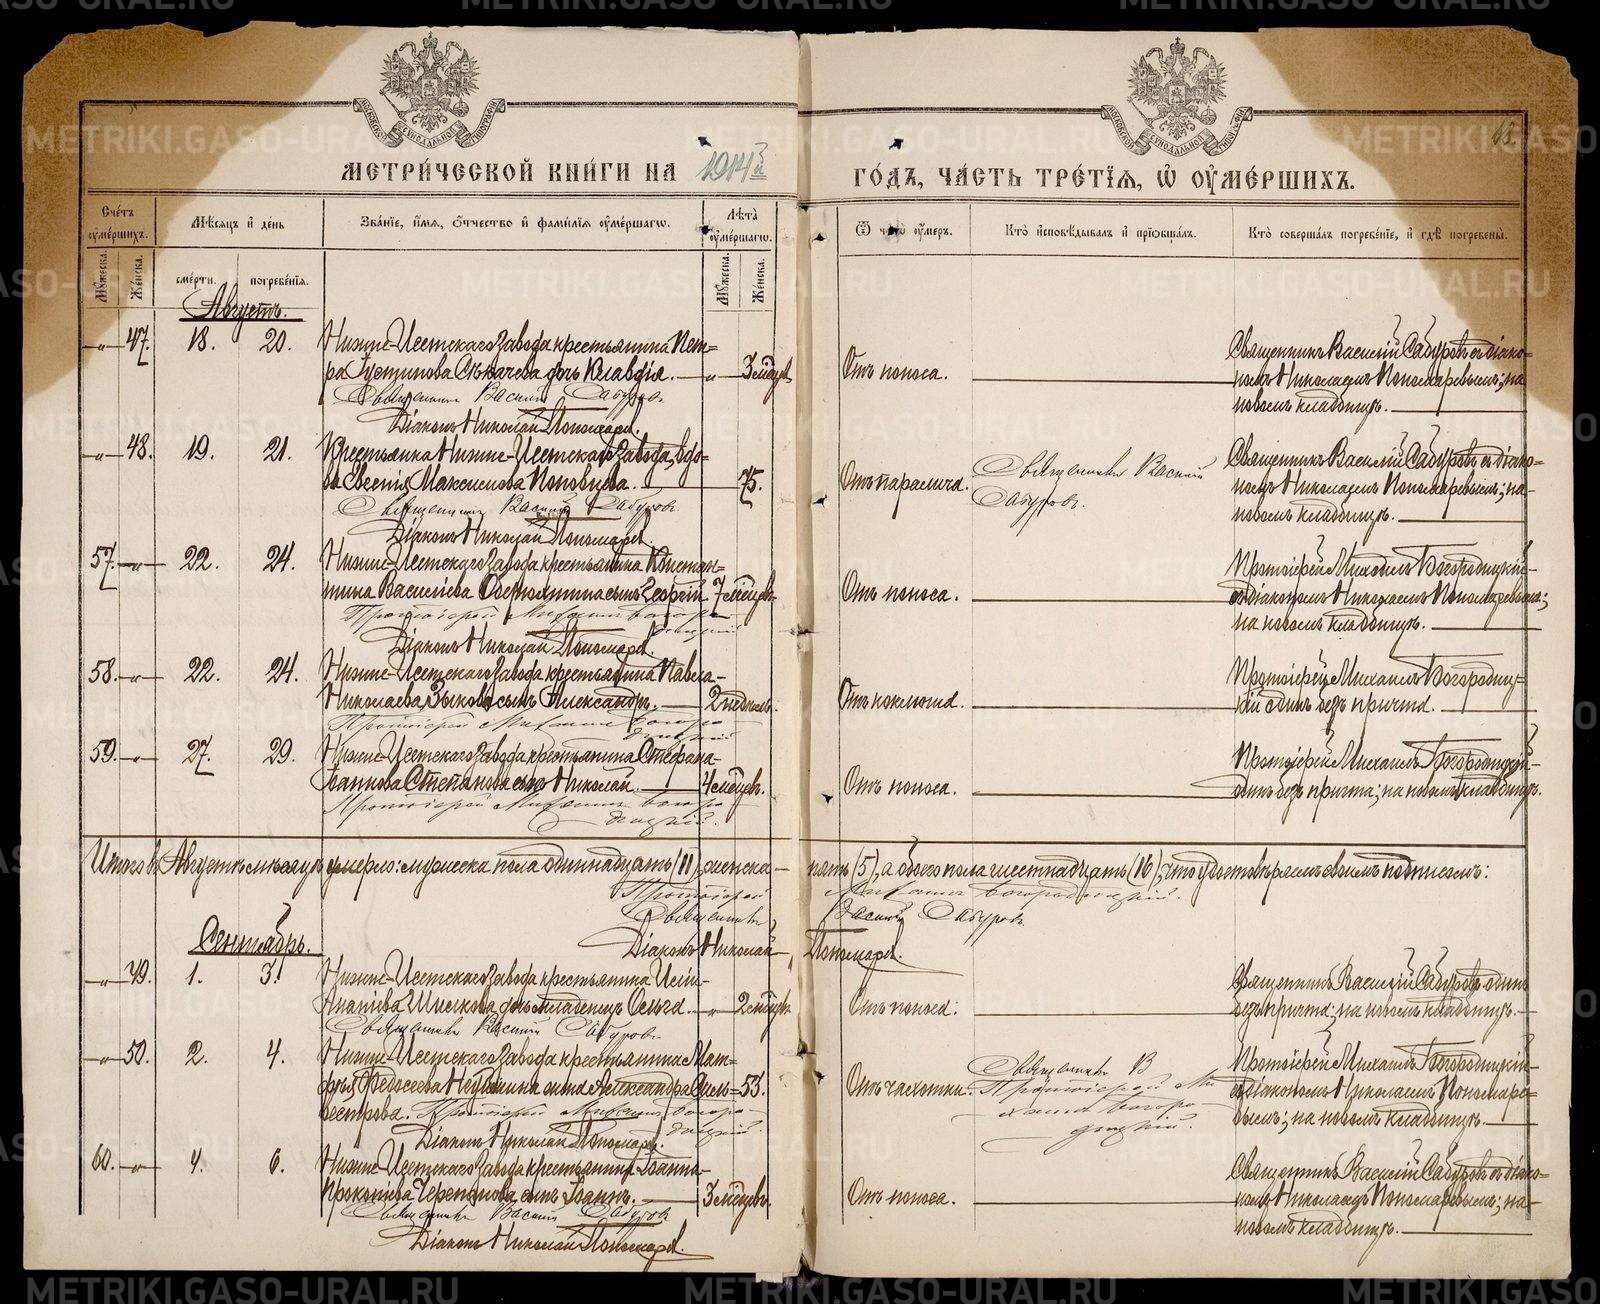 МЕТРИ́ЧЕСКОЙ КНИ́ГИ НА 1914й ГО́ДЪ, ЧА́СТЬ ТРЕ́ТЇѦ, Ѡ҆ ОУ҆МЕ́РШИХЪ.
Сче́тъ оу҆ме́ршихъ.
Мꙋ́жеска.
Же́нска.
Мѣ́сѧцъ и҆ де́нь
сме́рти.
погребе́нїѧ.
Зва́нїе, и҆́мѧ, ѻ҆́тчество и҆ фами́лїѧ оу҆ме́ршагѡ.
Лѣ́та оу҆ме́ршагѡ.
Мꙋ́жеска.
Же́нска.
Ѿ чегѡ̀ оу҆́меръ.
Кто̀ и҆сповѣ́дывалъ и҆ прїѡбща́лъ.
Кто̀ соверша́лъ погребе́нїе, и҆ гдѣ̀ погребены̀.
Августъ.
-"- 47. 18. 20.
Нижне-Исетскаго завода крестьянина Пет=
ра Густинова Сѣкачева дочь Клавдія. -"- 3 мѣсяц.
Священникъ Василій Сабуровъ
Діаконъ Николай Пономарев.
Отъ поноса.
Священникъ Василій Сабуровъ съ діако=
номъ Николаемъ Пономаревымъ; на
новомъ кладбищѣ.
-"- 48. 19. 21.
Крестьянка Нижне-Исетскаго завода, вдо-
ва Максимова 75.
Священникъ Василій Сабуровъ
Діаконъ Николай Пономарев.
Отъ паралича.
Священникъ Василій
Сабуровъ.
Священникъ Василій Сабуровъ съ діако=
номъ Николаемъ Пономаревымъ; на-
новомъ кладбищѣ.
57. -"- 22. 24.
Нижне-Исетскаго завода крестьянина Констан-
тина Васильева сынъ Георгій. 7 мѣсяцев.
Протоіерей Михаилъ Богоро-
дицкій
Діаконъ Николай Пономарев.
Отъ поноса.
Протоіерей Михаилъ Богородицкій-
съ діакономъ Николаемъ Пономаревымъ;
на новомъ кладбищѣ.
58. -"- 22. 24.
Нижне-Исетскаго завода крестьянина Павла-
Николаева Зыкова сынъ Александръ. 2 недѣль.
Протоіерей Михаилъ Богоро-
дицкій
Отъ коклюша.
Протоіерей Михаилъ Богородиц=
кій одинъ безъ причта.
59. -"- 27. 29.
Нижне-Исетскаго завода крестьянина Стефана-
Іоаннова Степанова сынъ Николай. 4 мѣсяцев.
Протоіерей Михаилъ Богоро-
дицкій.
Отъ поноса.
Протоіерей Михаилъ Богородицкій-
одинъ безъ причта; на новомъ кладбищѣ.
Итого въ Августѣ мѣсяцѣ умерло: мужеска пола одиннадцать (11), женска- пять (5), а обоего пола шестнадцать (16); что удостовѣряемъ своимъ подписомъ:
Протоіерей Михаилъ Богородицкій.
Священникъ Василій Сабуровъ
Діаконъ Николай Пономарев.
Сентябрь.
-"- 49. 1. 3.
Нижне-Исетскаго завода крестьянина
Ананіева дочь младенецъ Ольга. -"- 2 мѣсяц.
Священникъ Василій Сабуровъ
Отъ поноса.
Священникъ Василій Сабуровъ одинъ
безъ причта; на новомъ кладбищѣ.
-"- 50. 2. 4.
Нижне-Исетскаго завода крестьянина Мат=
фея Федосеева жена Александра Силь= 53.
вестрова. Протоіерей Михаилъ Богоро-
дицкій.
Діаконъ Николай Пономарев.
Отъ чахотки.
Священникъ В
Протоіерей Ми
хаилъ Богоро-
дицкій.
Протоіерей Михаилъ Богородицкій-
съ діакономъ Николаемъ Пономаре-
вымъ; на новомъ кладбищѣ.
60. -"- 4. 6.
Нижне-Исетскаго завода крестьянина Іоанна-
Прокопіева Черепанова сынъ Іоаннъ. 3 мѣсяцев.
Священникъ Василій Сабуровъ
Діаконъ Николай Пономарев.
Отъ поноса.
Священникъ Василій Сабуровъ съ діако=
номъ Николаемъ Пономаревымъ; на-
новомъ кладбищѣ.
METRIKI.GASO-URAL.RU